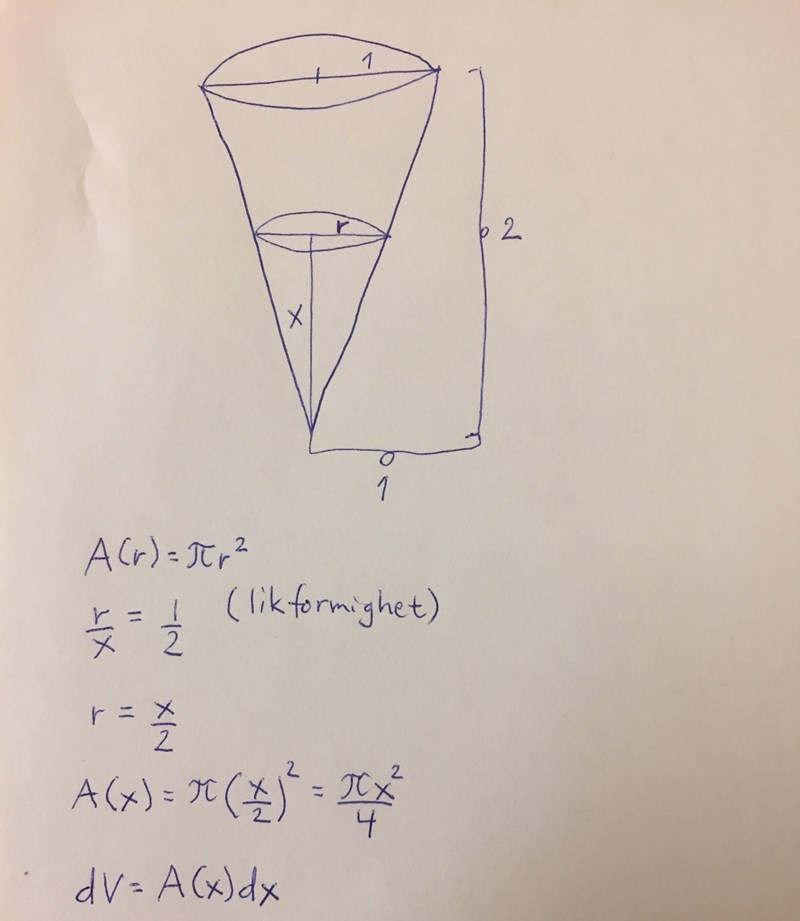 1
r
2
x
1
A(r) = πr²
r/x = 1/2 (likformighet)
r = x/2
A(x) = π(x/2)² = πx²/4
dV = A(x)dx